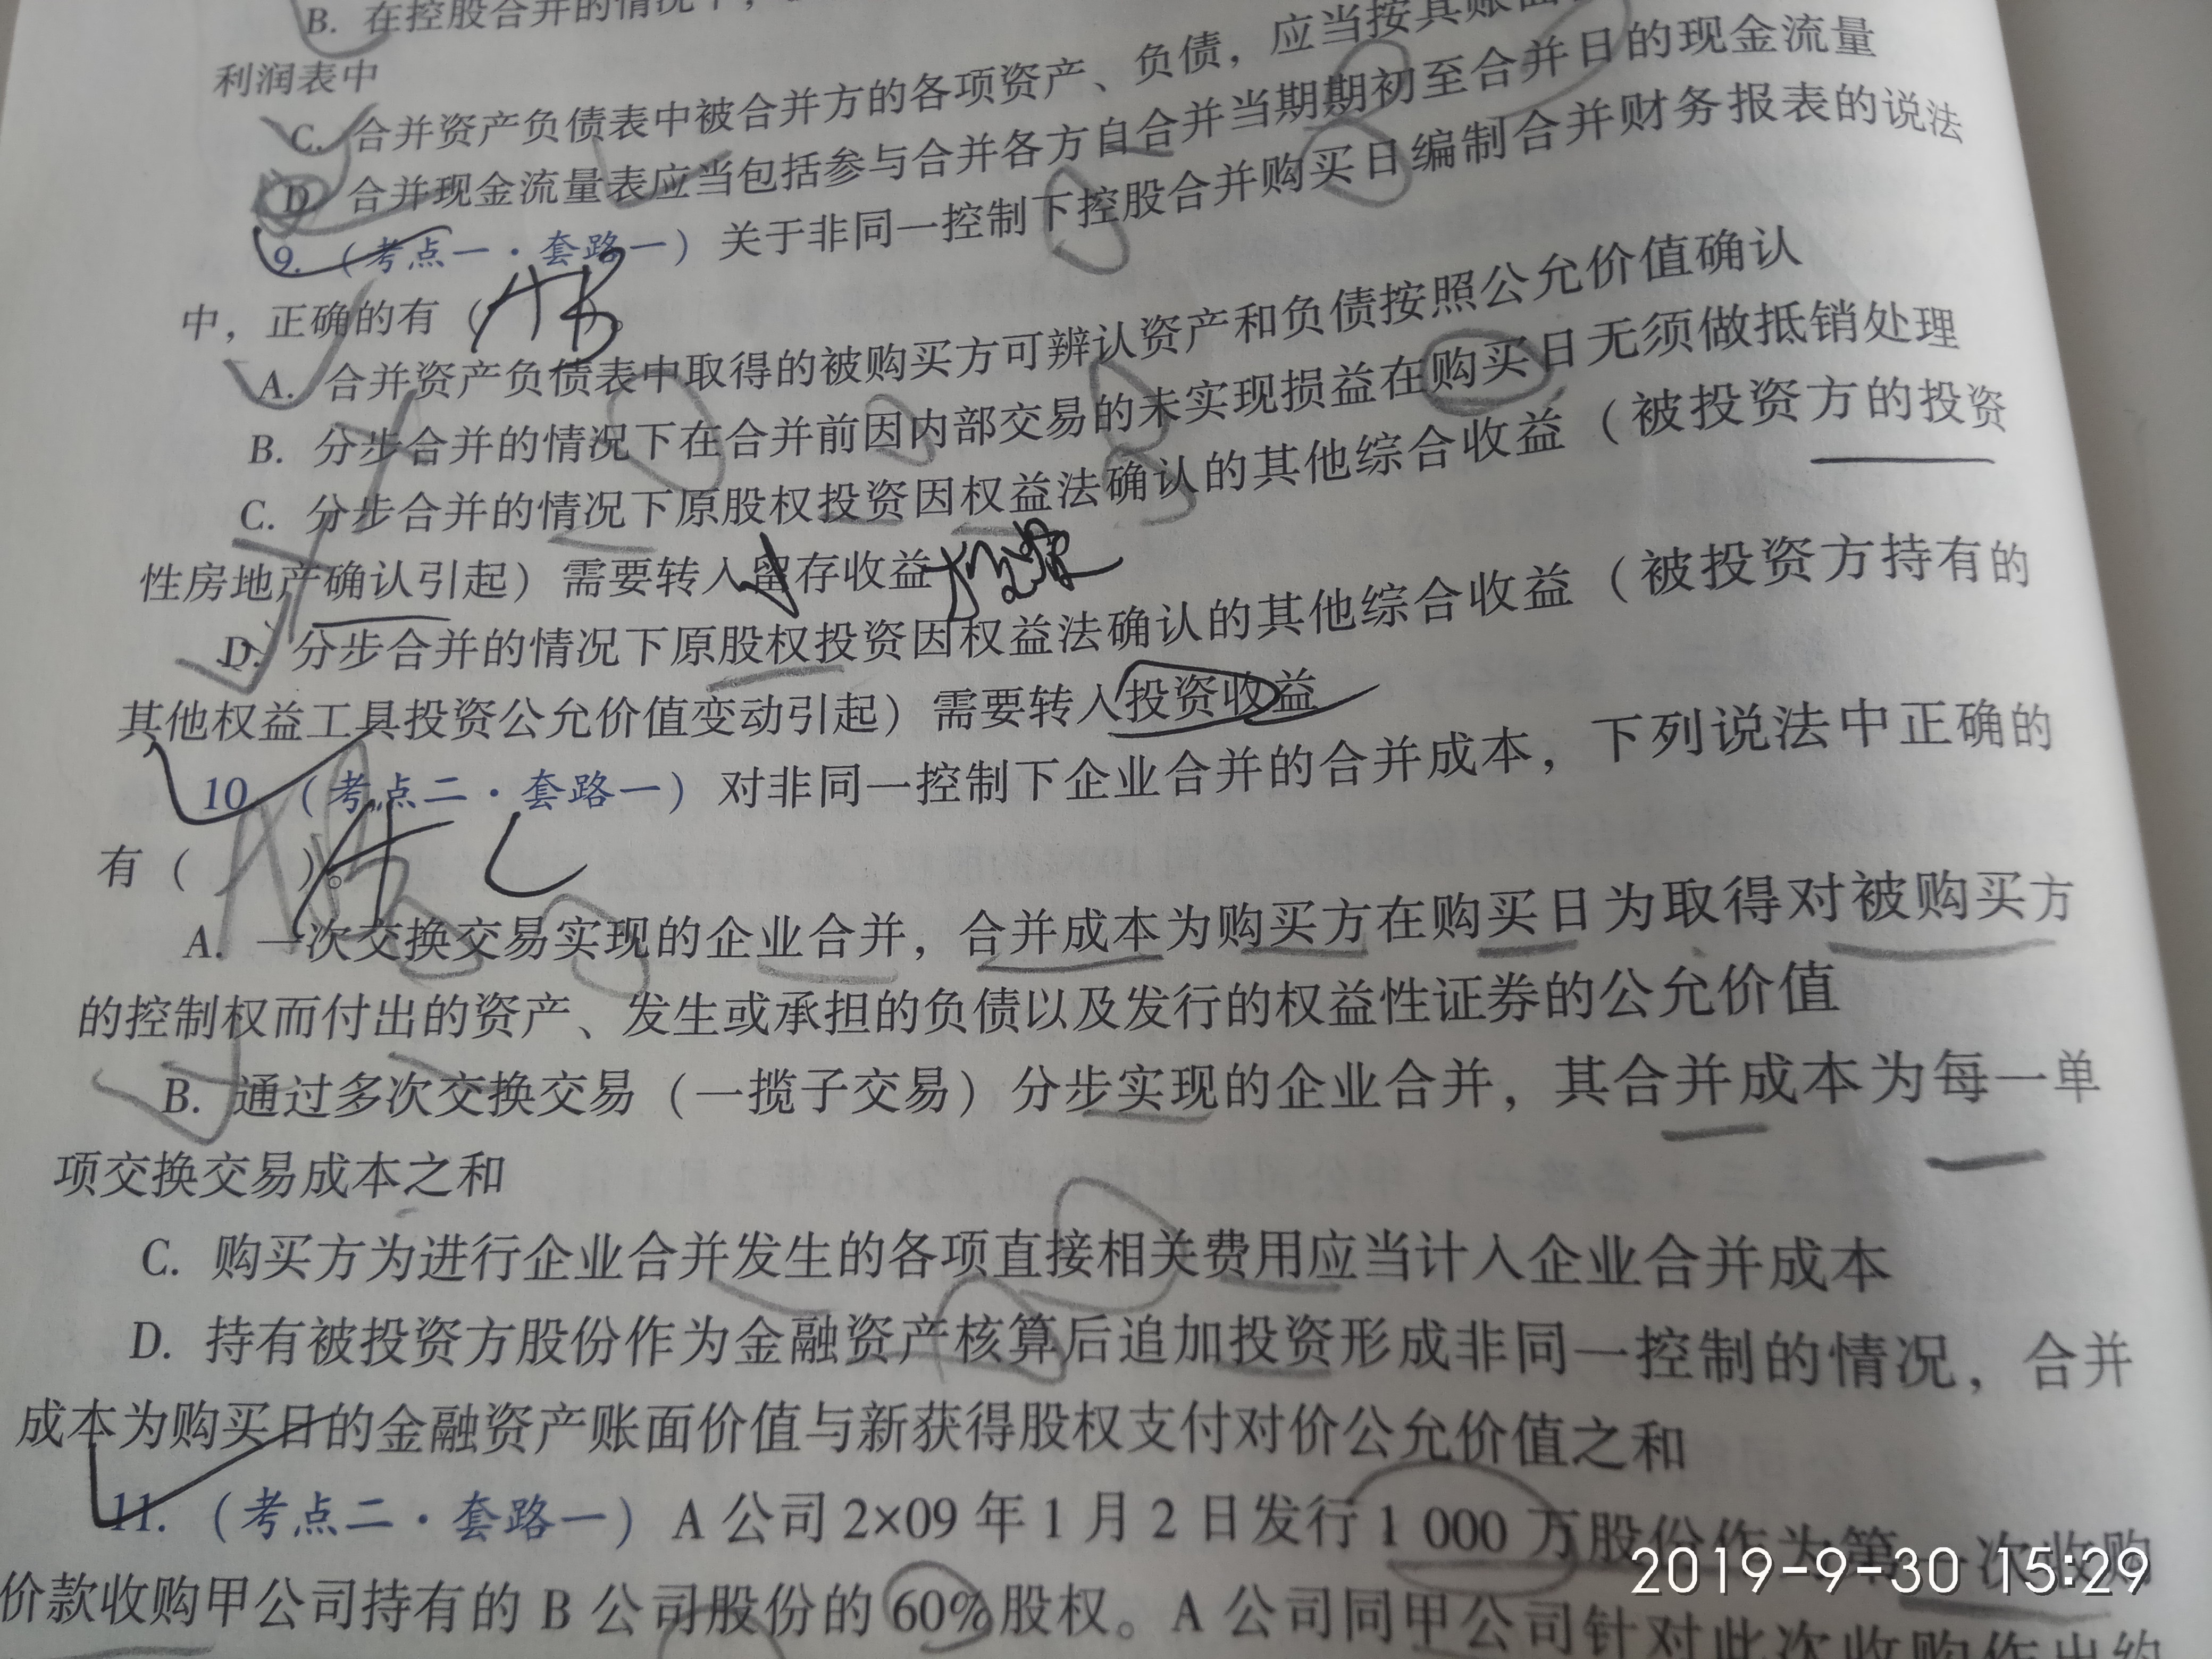 B. 在控股合并的情况下，
利润表中
C. 合并资产负债表中被合并方的各项资产、负债，应当按其账面
D. 合并现金流量表应当包括参与合并各方自合并当期期初至合并日的现金流量
9. （考点一·套路一）关于非同一控制下控股合并购买日编制合并财务报表的说法
中，正确的有（AB）。
A. 合并资产负债表中取得的被购买方可辨认资产和负债按照公允价值确认
B. 分步合并的情况下在合并前因内部交易的未实现损益在购买日无须做抵销处理
C. 分步合并的情况下原股权投资因权益法确认的其他综合收益（被投资方的投资
性房地产确认引起）需要转入留存收益
D. 分步合并的情况下原股权投资因权益法确认的其他综合收益（被投资方持有的
其他权益工具投资公允价值变动引起）需要转入投资收益
10. （考点二·套路一）对非同一控制下企业合并的合并成本，下列说法中正确的
有（ ）。
A. 一次交换交易实现的企业合并，合并成本为购买方在购买日为取得对被购买方
的控制权而付出的资产、发生或承担的负债以及发行的权益性证券的公允价值
B. 通过多次交换交易（一揽子交易）分步实现的企业合并，其合并成本为每一单
项交换交易成本之和
C. 购买方为进行企业合并发生的各项直接相关费用应当计入企业合并成本
D. 持有被投资方股份作为金融资产核算后追加投资形成非同一控制的情况，合并
成本为购买日的金融资产账面价值与新获得股权支付对价公允价值之和
11. （考点二·套路一）A公司2×09年1月2日发行1 000万股份作为第一次收购
价款收购甲公司持有的B公司股份的60%股权。A公司同甲公司针对此次收购作出约
2019-9-30 15:29